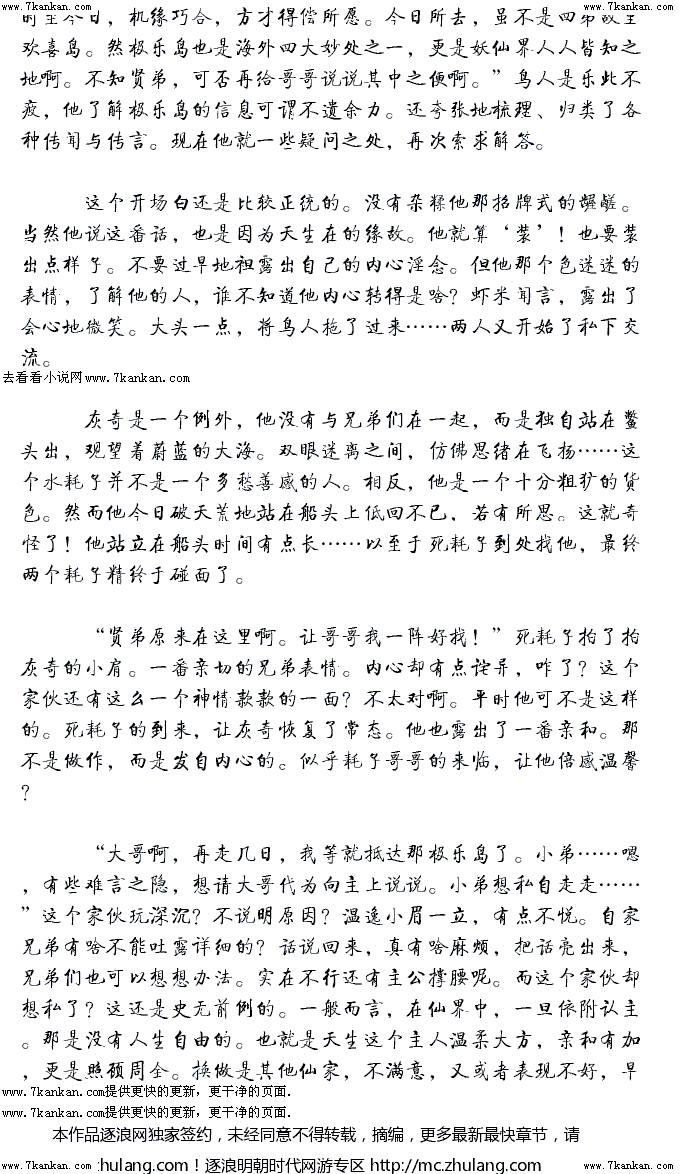 www.7kankan.com www.7kankan.com
时至今日，机缘巧合，方才得偿所愿。今日所去，虽不是四弟故里
欢喜岛。然极乐岛也是海外四大妙处之一，更是妖仙界人人皆知之
地啊。不知贤弟，可否再给哥哥说说其中之便啊。”鸟人是乐此不
疲，他了解极乐岛的信息可谓不遗余力。还夸张地梳理、归类了各
种传闻与传言。现在他就一些疑问之处，再次索求解答。
这个开场白还是比较正统的。没有杂糅他那招牌式的龌龊。
当然他说这番话，也是因为天生在的缘故。他就算‘装’！也要装
出点样子。不要过早地袒露出自己的内心淫念。但他那个色迷迷的
表情，了解他的人，谁不知道他内心转得是啥？虾米闻言，露出了
会心地微笑。大头一点，将鸟人拖了过来……两人又开始了私下交
流。
去看看小说网www.7kankan.com
灰奇是一个例外，他没有与兄弟们在一起，而是独自站在鳌
头出，观望着蔚蓝的大海。双眼迷离之间，仿佛思绪在飞扬……这
个水耗子并不是一个多愁善感的人。相反，他是一个十分粗犷的货
色。然而他今日破天荒地站在船头上低回不已，若有所思。这就奇
怪了！他站立在船头时间有点长……以至于死耗子到处找他，最终
两个耗子精终于碰面了。
“贤弟原来在这里啊。让哥哥我一阵好找！”死耗子拍了拍
灰奇的小肩。一番亲切的兄弟表情。内心却有点诧异，咋了？这个
家伙还有这么一个神情款款的一面？不太对啊。平时他可不是这样
的。死耗子的到来，让灰奇恢复了常态。他也露出了一番亲和。那
不是做作，而是发自内心的。似乎耗子哥哥的来临，让他倍感温馨
？
“大哥啊，再走几日，我等就抵达那极乐岛了。小弟……嗯
，有些难言之隐，想请大哥代为向主上说说。小弟想私自走走……
”这个家伙玩深沉？不说明原因？温逸小眉一立，有点不悦。自家
兄弟有啥不能吐露详细的？话说回来，真有啥麻烦，把话亮出来，
兄弟们也可以想想办法。实在不行还有主公撑腰呢。而这个家伙却
想私了？这还是史无前例的。一般而言，在仙界中，一旦依附认主
。那是没有人生自由的。也就是天生这个主人温柔大方，亲和有加
，更是照顾周全。换做是其他仙家，不满意，又或者表现不好，早
www.7kankan.com提供更快的更新，更干净的页面.
www.7kankan.com提供更快的更新，更干净的页面.
本作品逐浪网独家签约，未经同意不得转载，摘编，更多最新最快章节，请
www.7kankan.com :hulang.com！逐浪明朝时代网游专区 http://mc.zhulang.com www.7kankan.com